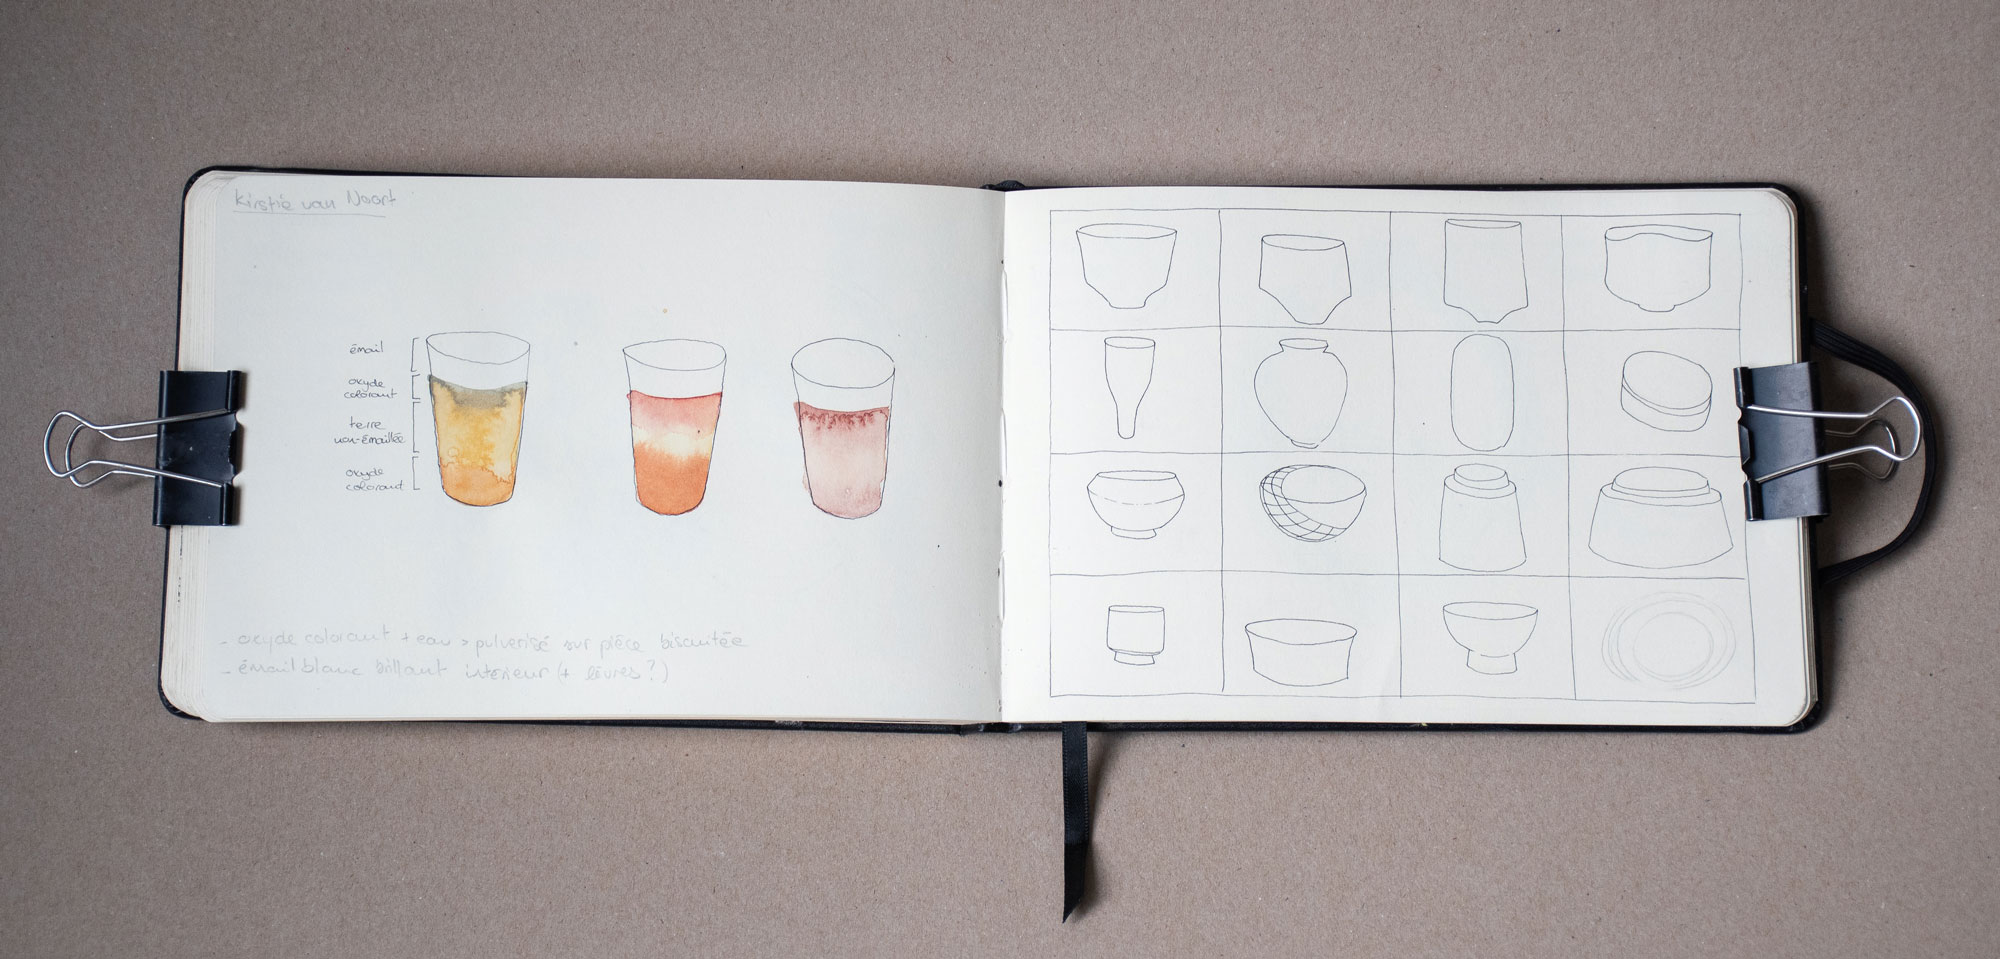 Kirstie van Noort
émail
oxyde
colorant
terre
non-émaillée
oxyde
colorant
- oxyde colorant + eau > pulvérisé sur pièce biscuitée
- émail blanc brillant intérieur (+ lèvres?)